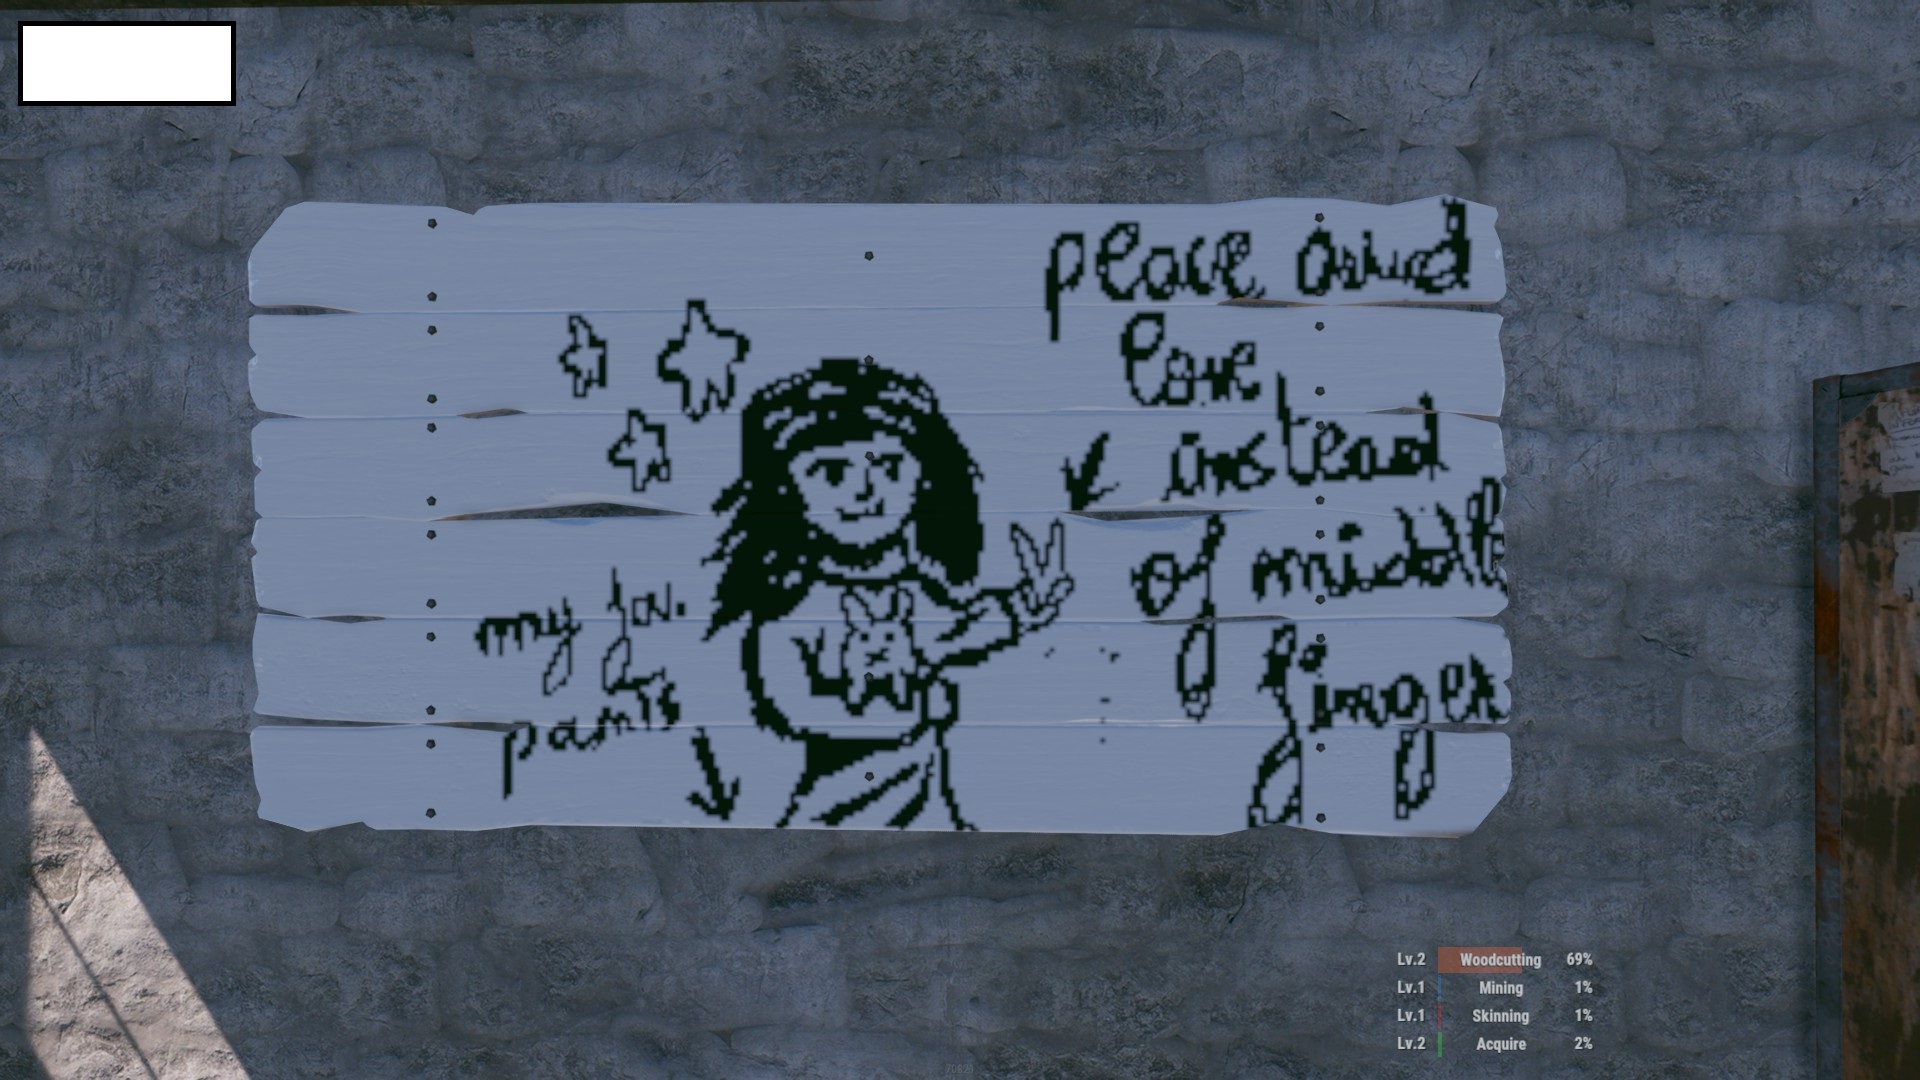 peace and
love
instead
of middle
finger
my fav.
pants
Lv.2 Woodcutting 69%
Lv.1 Mining 1%
Lv.1 Skinning 1%
Lv.2 Acquire 2%